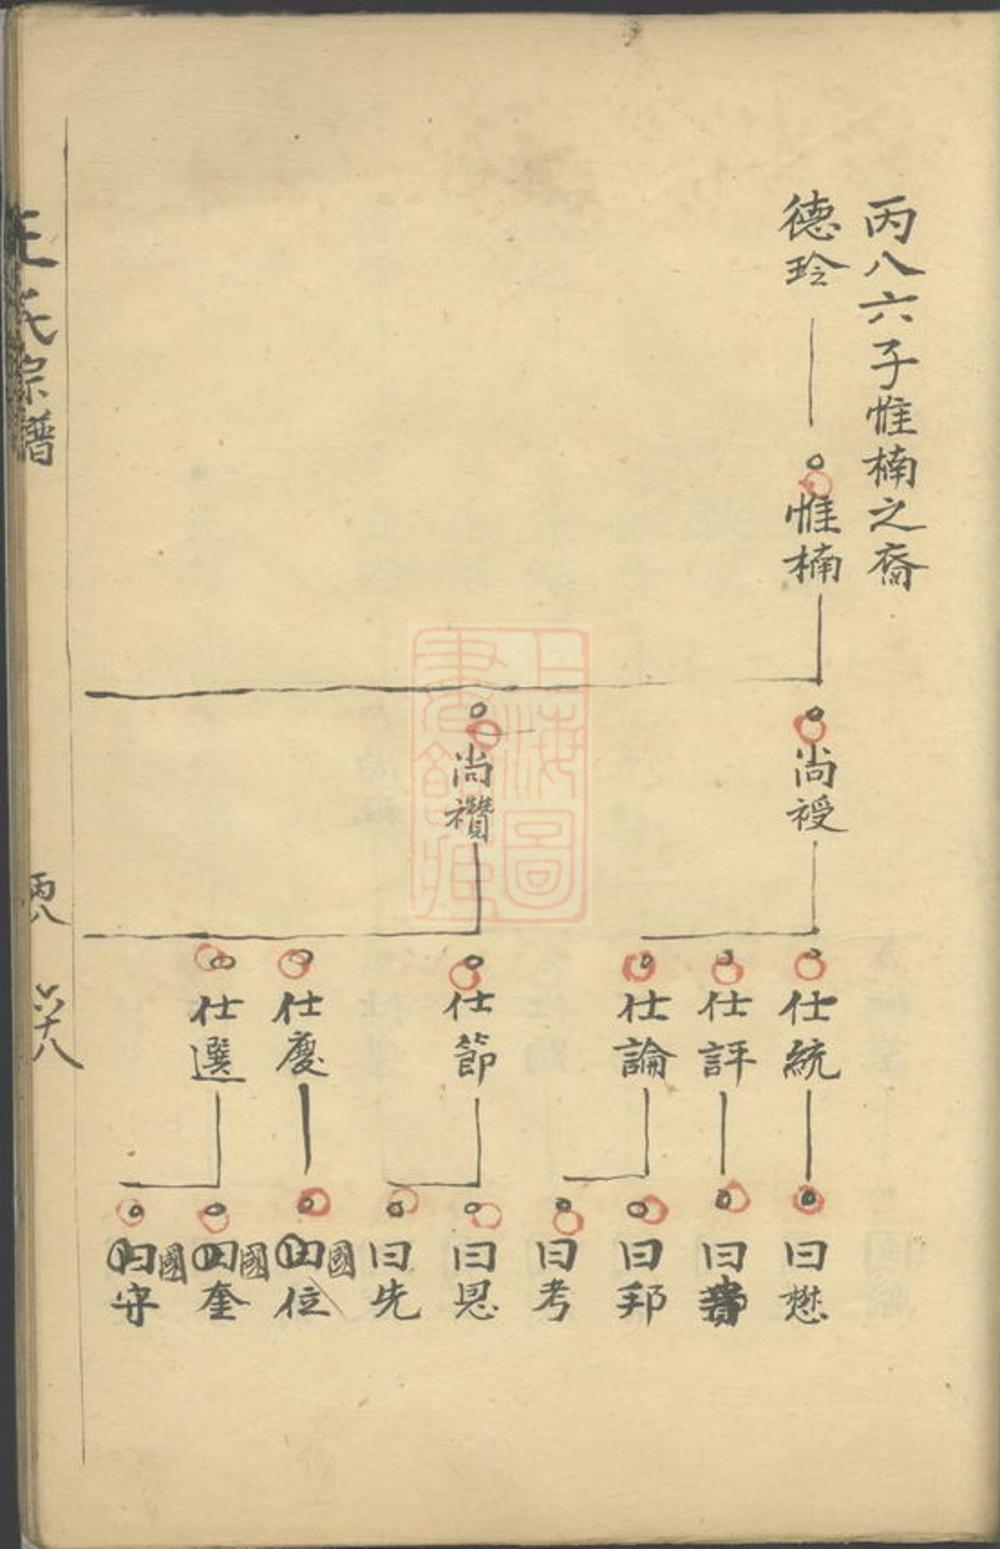 丙八六子惟楠之裔
德玲
惟楠
尚授
尚禶
仕統
仕評
仕論
仕節
仕慶
仕選
曰懋
曰
曰邦
曰考
曰恩
曰先
曰國位
曰國奎
曰國守
王氏宗譜
丙八
上海圖書館藏